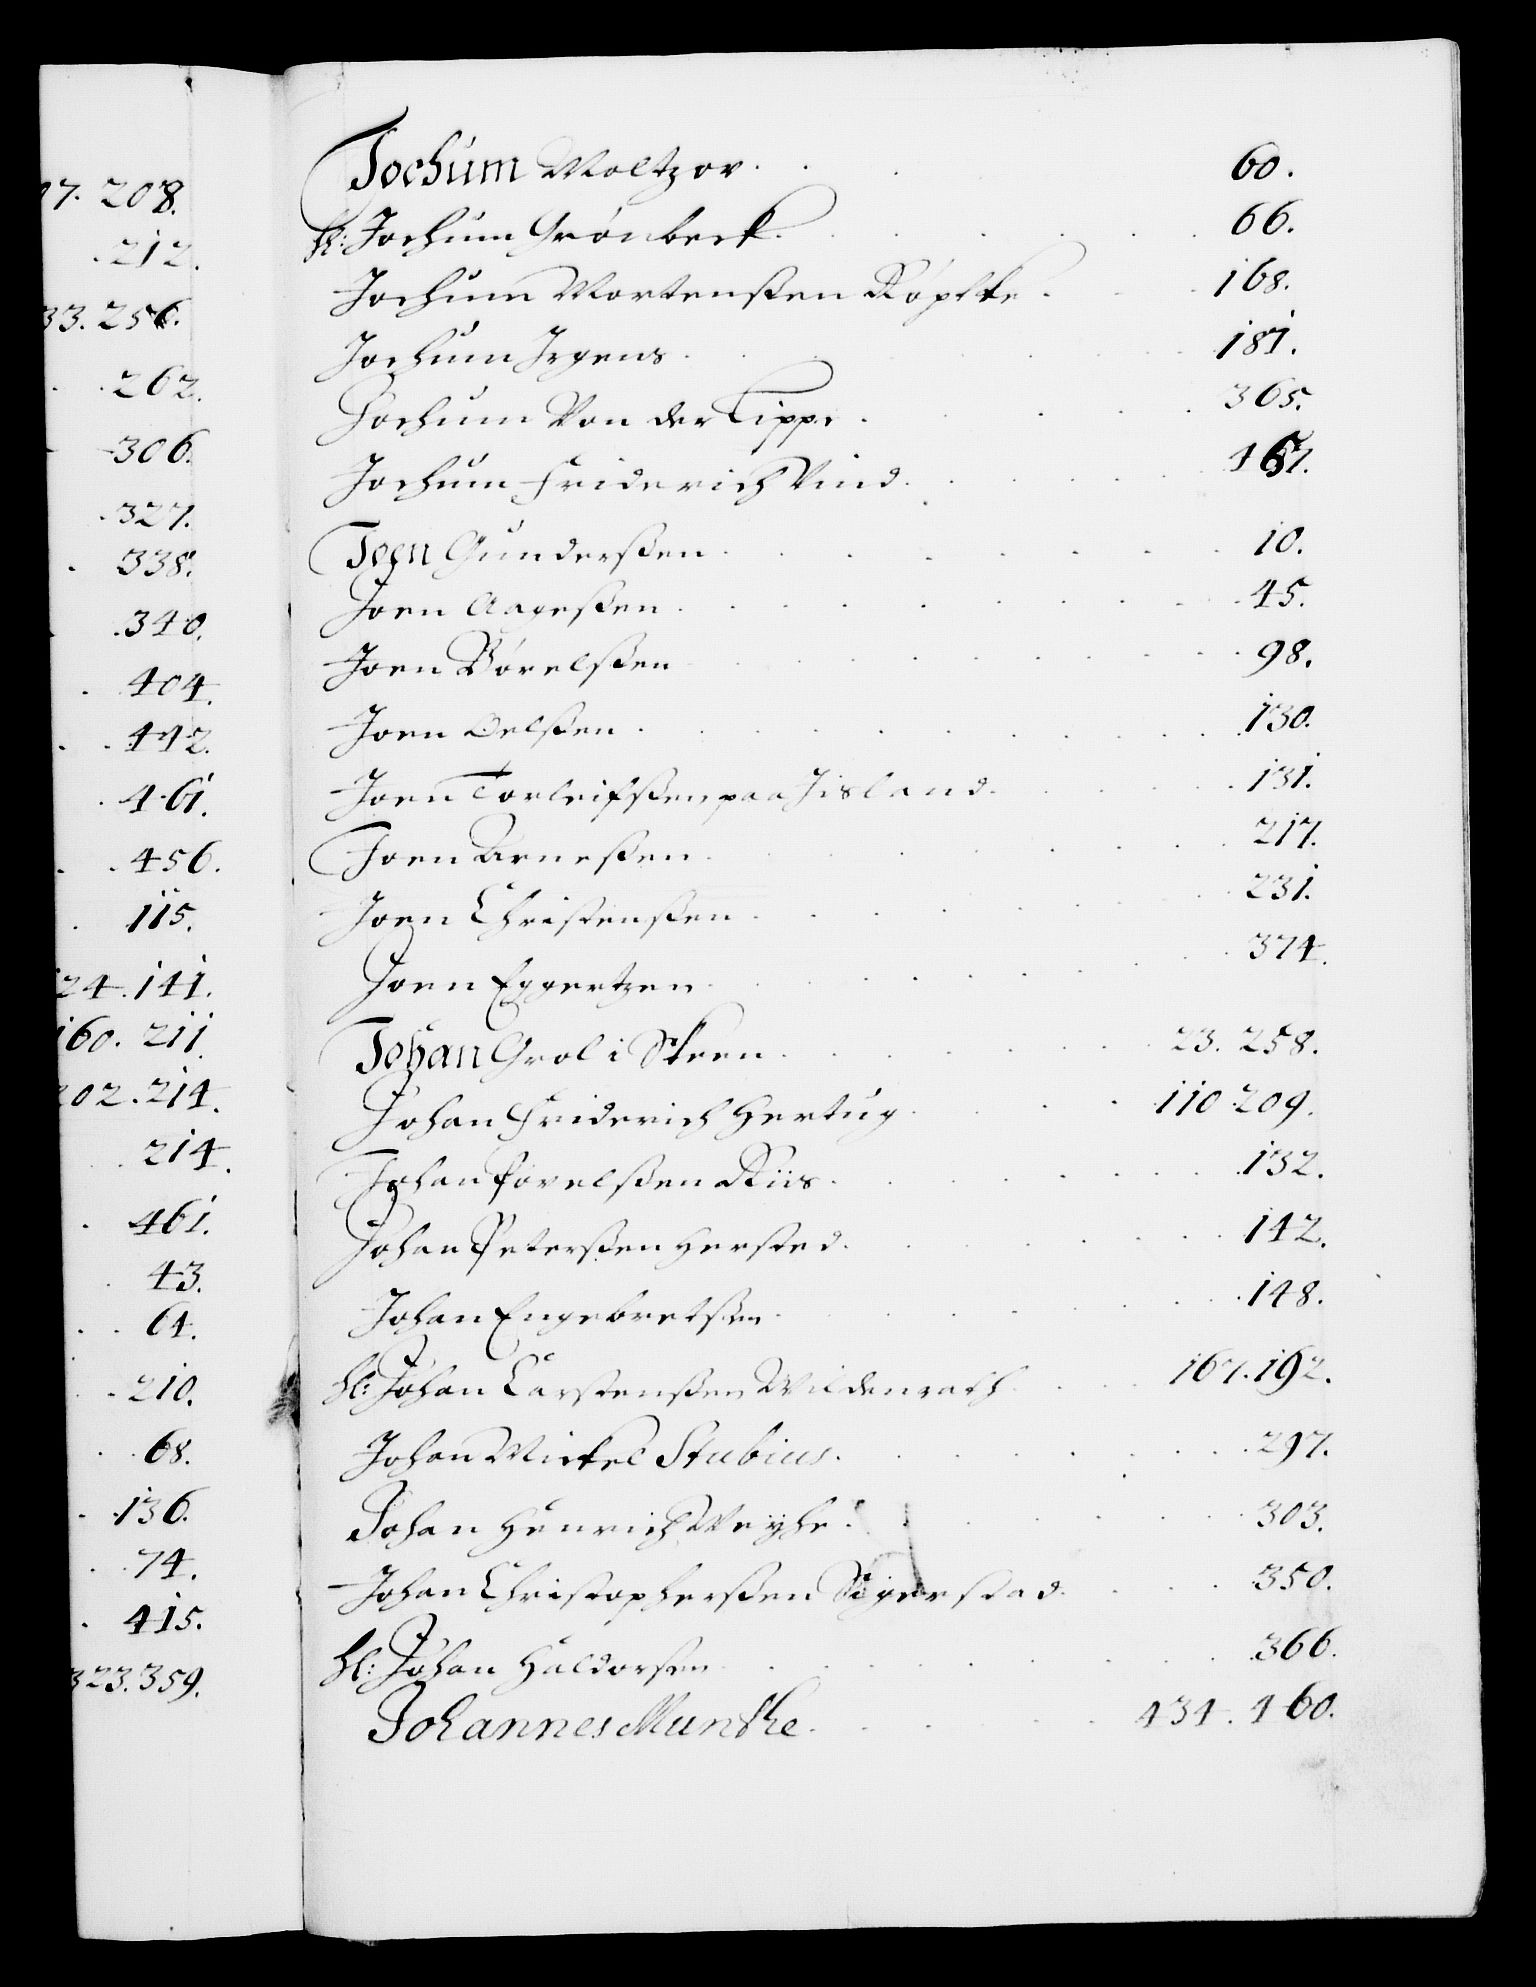 17. 208.
212.
33. 256.
262.
306.
327.
338.
340.
404.
442.
461.
456.
115.
24. 141.
160. 211
202. 214.
214.
461.
43.
64.
210.
68.
136.
74.
415.
323. 359.
Jochum Moltzov . . . 60.
hl: Jochum Grönbeck . . . 66.
Jochum Mortenssen Köpffke . . . 168.
Jochum Irgens . . . 181.
Jochum Von der Lippe . . . 365.
Jochum Friderich Vind . . . 
Joen Gunderssen . . . 10.
Joen Aagessen . . . 45.
Joen Börelssen . . . 98.
Joen Oelssen . . . 130.
Joen Torleifssen paa Jisland . . . 131.
Joen Arnessen . . . 217.
Joen Christenssen . . . 231.
Joen Eggertzen . . . 374.
Johan Grol i Skeen . . . 23. 258.
Johan Friderich Hertug . . . 110 209.
Johan Povelssen Riis . . . 132.
Johan Peterssen Hersted . . . 142.
Johan Engebretssen . . . 148.
hl: Johan Carstenssen Wildenrath . . . 167. 192.
Johan Mickel Stubius . . . 297.
Johan Henrich Weyhe . . . 303.
Johan Christopherssen Sigerstad . . . 350.
hl: Johan Haldorsen . . . 366.
Johannes Munthe . . . 434. 460.